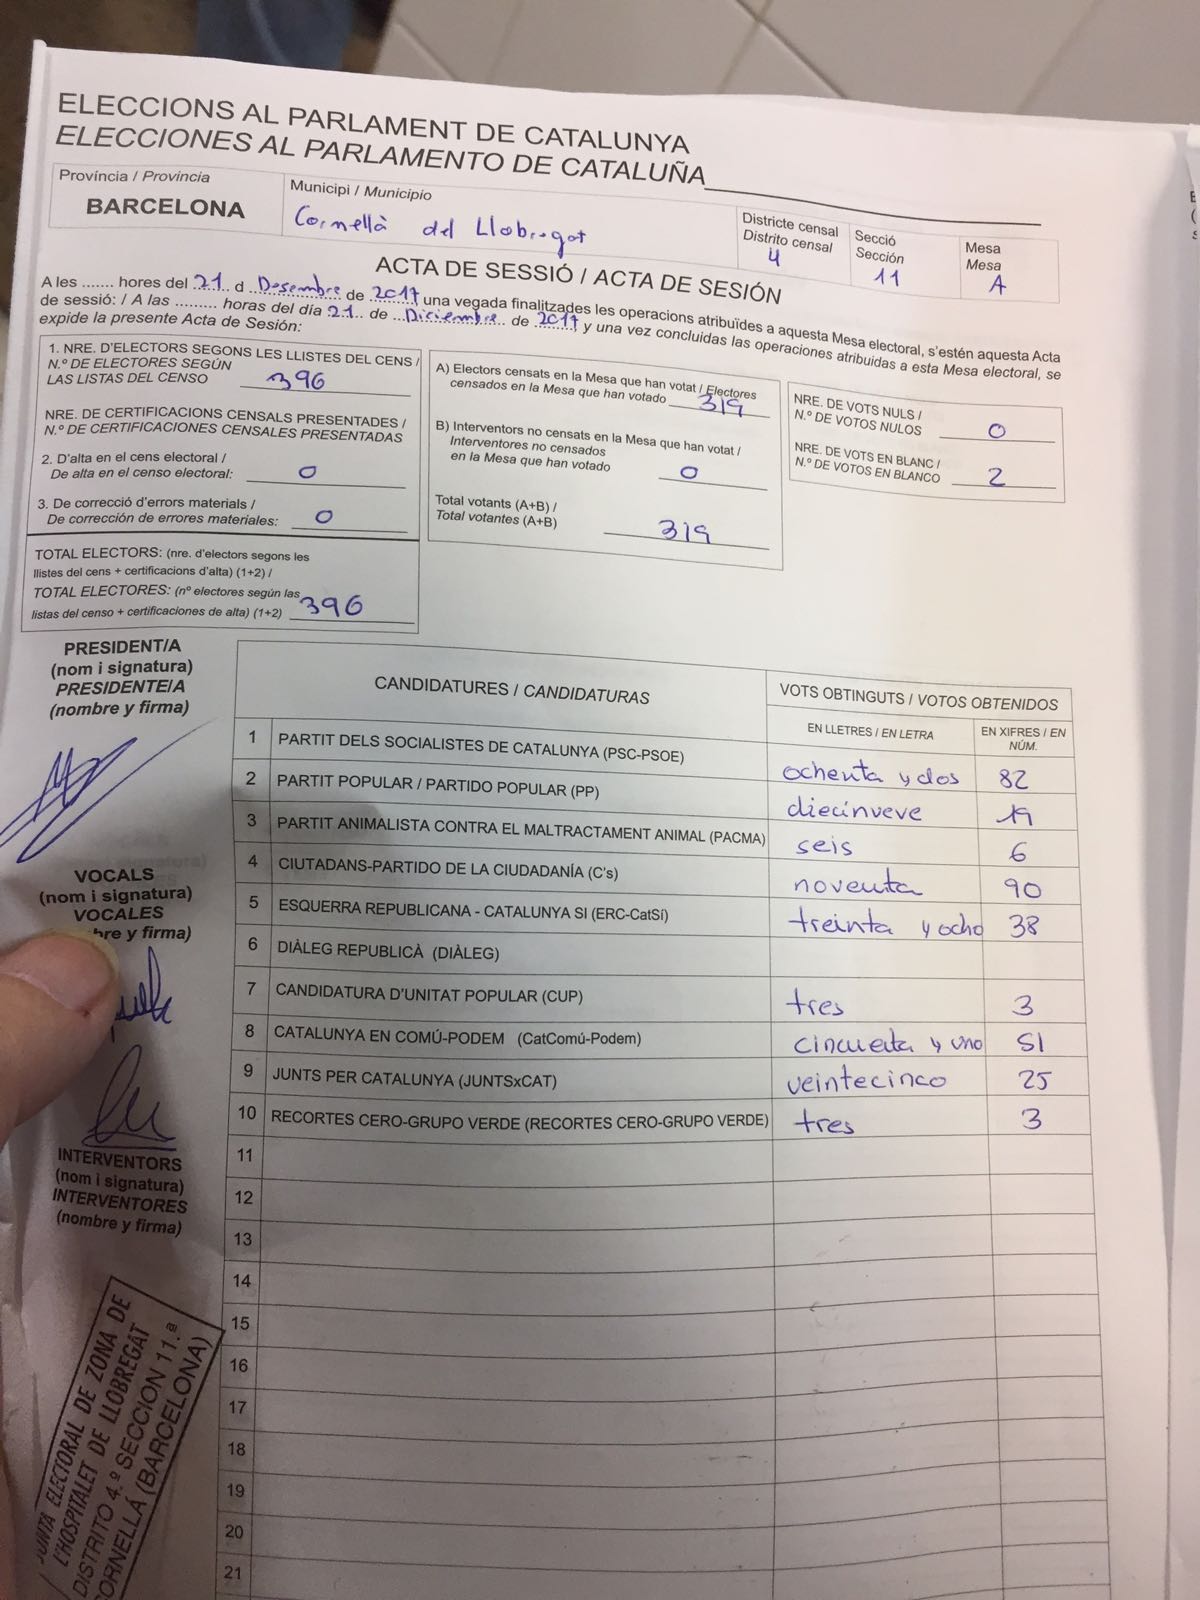 ELECCIONS AL PARLAMENT DE CATALUNYA
ELECCIONES AL PARLAMENTO DE CATALUÑA
Província / Provincia
BARCELONA
Municipi / Municipio
Cornellà del Llobregat
Districte censal
Distrito censal
4
Secció
Sección
11
Mesa
Mesa
A
ACTA DE SESSIÓ / ACTA DE SESIÓN
A les ....... hores del 21 d Desembre de 2017 una vegada finalitzades les operacions atribuïdes a aquesta Mesa electoral, s'estén aquesta Acta
de sessió: / A las ......... horas del día 21 de Diciembre de 2017 y una vez concluidas las operaciones atribuidas a esta Mesa electoral, se
expide la presente Acta de Sesión:
1. NRE. D'ELECTORS SEGONS LES LLISTES DEL CENS /
N.º DE ELECTORES SEGÚN
LAS LISTAS DEL CENSO 396
NRE. DE CERTIFICACIONS CENSALS PRESENTADES /
N.º DE CERTIFICACIONES CENSALES PRESENTADAS
2. D'alta en el cens electoral /
De alta en el censo electoral: 0
3. De correcció d'errors materials /
De corrección de errores materiales: 0
TOTAL ELECTORS: (nre. d'electors segons les
llistes del cens + certificacions d'alta) (1+2) /
TOTAL ELECTORES: (nº electores según las
listas del censo + certificaciones de alta) (1+2) 396
A) Electors censats en la Mesa que han votat / Electores
censados en la Mesa que han votado 319
B) Interventors no censats en la Mesa que han votat /
Interventores no censados
en la Mesa que han votado 0
Total votants (A+B) /
Total votantes (A+B) 319
NRE. DE VOTS NULS /
N.º DE VOTOS NULOS 0
NRE. DE VOTS EN BLANC /
N.º DE VOTOS EN BLANCO 2
PRESIDENT/A
(nom i signatura)
PRESIDENTE/A
(nombre y firma)
VOCALS
(nom i signatura)
VOCALES
bre y firma)
INTERVENTORS
(nom i signatura)
INTERVENTORES
(nombre y firma)
CANDIDATURES / CANDIDATURAS
VOTS OBTINGUTS / VOTOS OBTENIDOS
EN LLETRES / EN LETRA
EN XIFRES / EN
NÚM.
1 PARTIT DELS SOCIALISTES DE CATALUNYA (PSC-PSOE) ochenta y dos 82
2 PARTIT POPULAR / PARTIDO POPULAR (PP) diecinueve 19
3 PARTIT ANIMALISTA CONTRA EL MALTRACTAMENT ANIMAL (PACMA) seis 6
4 CIUTADANS-PARTIDO DE LA CIUDADANÍA (C's) noventa 90
5 ESQUERRA REPUBLICANA - CATALUNYA SI (ERC-CatSí) treinta y ocho 38
6 DIÀLEG REPUBLICÀ (DIÀLEG)
7 CANDIDATURA D'UNITAT POPULAR (CUP) tres 3
8 CATALUNYA EN COMÚ-PODEM (CatComú-Podem) cincuenta y uno 51
9 JUNTS PER CATALUNYA (JUNTSxCAT) veintecinco 25
10 RECORTES CERO-GRUPO VERDE (RECORTES CERO-GRUPO VERDE) tres 3
11
12
13
14
15
16
17
18
19
20
21
JUNTA ELECTORAL DE ZONA DE
L'HOSPITALET DE LLOBREGAT
DISTRITO 4.º SECCION 11.ª
CORNELLÁ (BARCELONA)